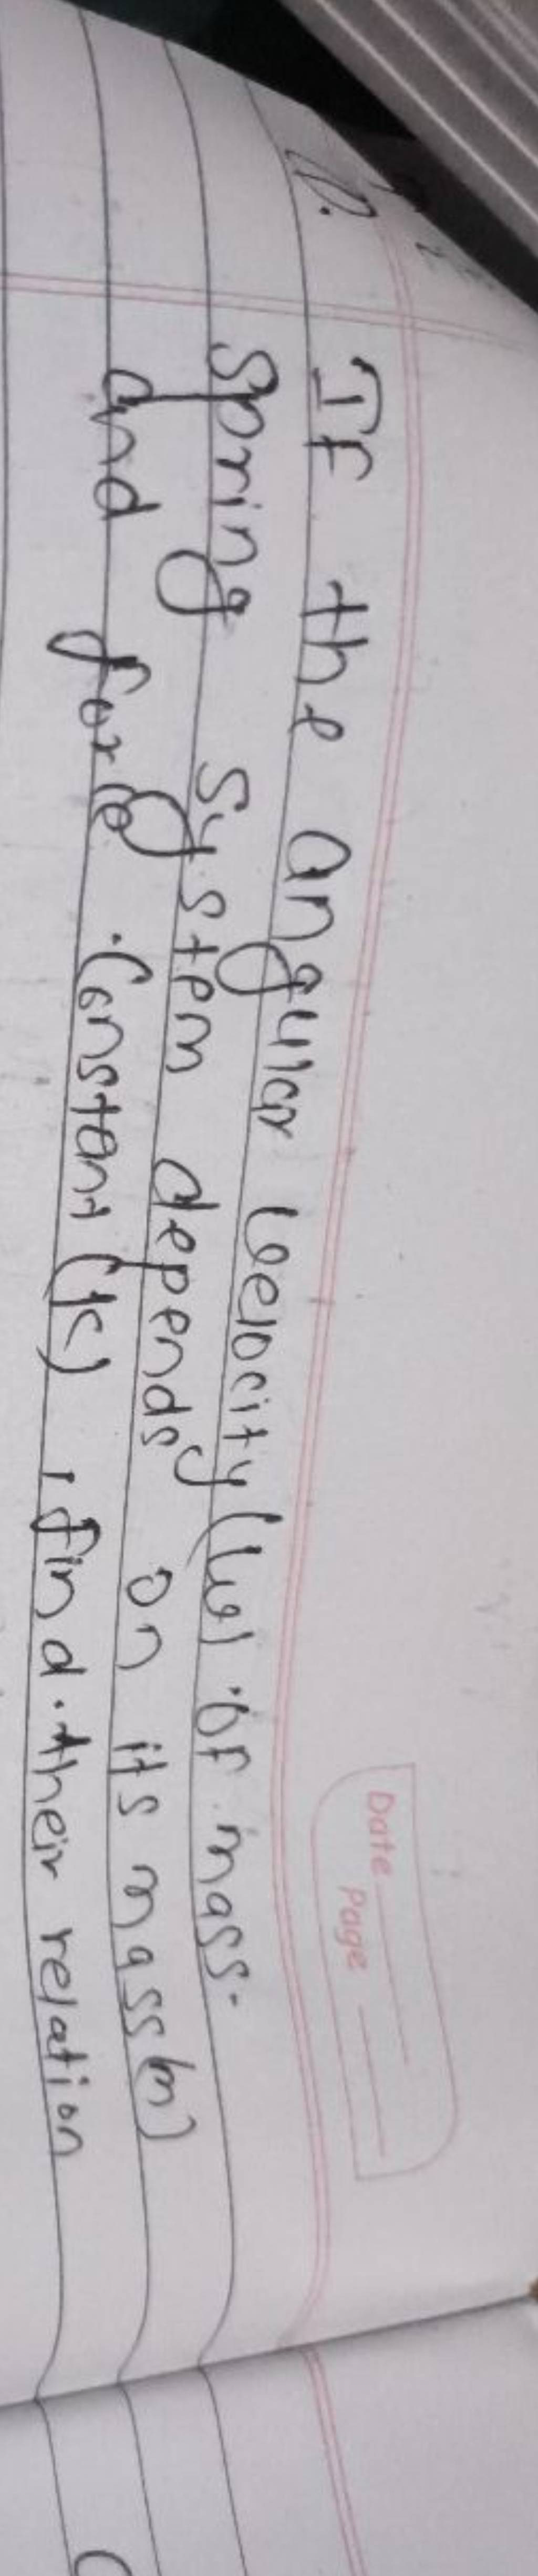 Date
Page
Q. If the angular velocity (w) of mass-
spring system depends on its mass (m)
and force constant (k), find their relation